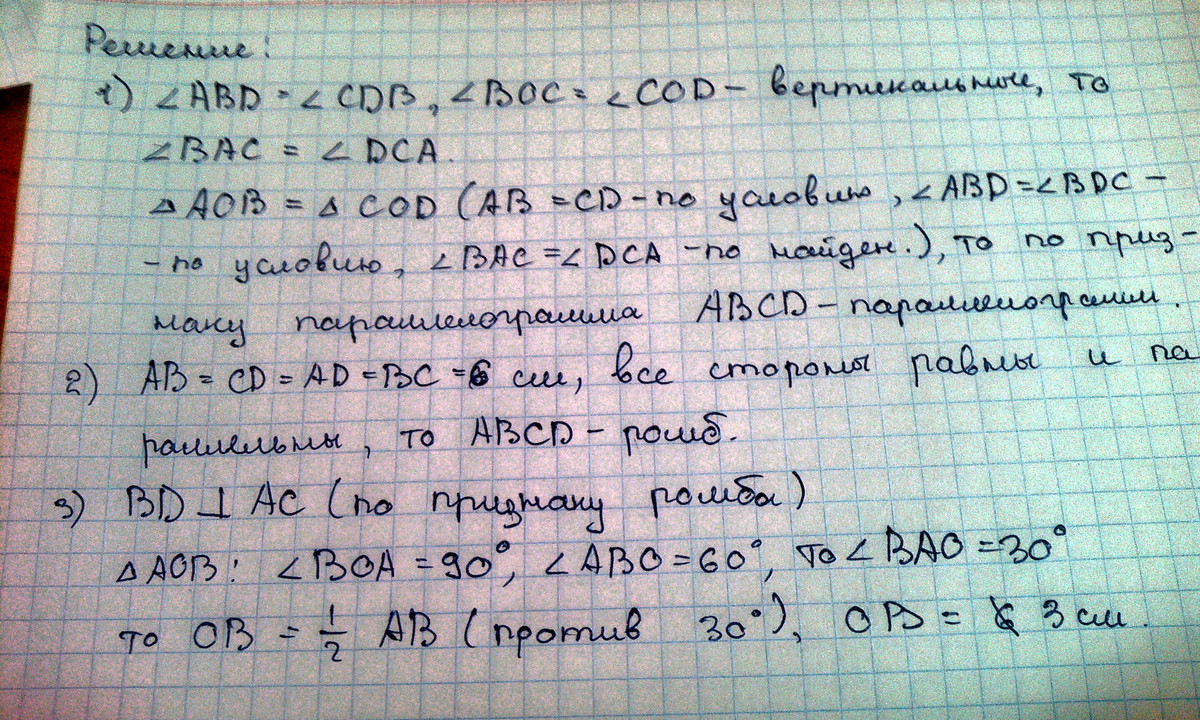 Решение:
1) ∠ABD = ∠CDB, ∠BOC = ∠COD – вертикальные, то
∠BAC = ∠DCA.
△AOB = △COD (AB = CD – по условию, ∠ABD = ∠BDC –
– по условию, ∠BAC = ∠DCA – по найден.), то по приз-
наку параллелограмма ABCD – параллелограмм.
2) AB = CD = AD = BC = 6 см, все стороны равны и па
раллельны, то ABCD – ромб.
3) BD ⊥ AC (по признаку ромба)
△AOB: ∠BOA = 90°, ∠ABO = 60°, то ∠BAO = 30°
то OB = 1/2 AB (против 30°), OB = 3 см.